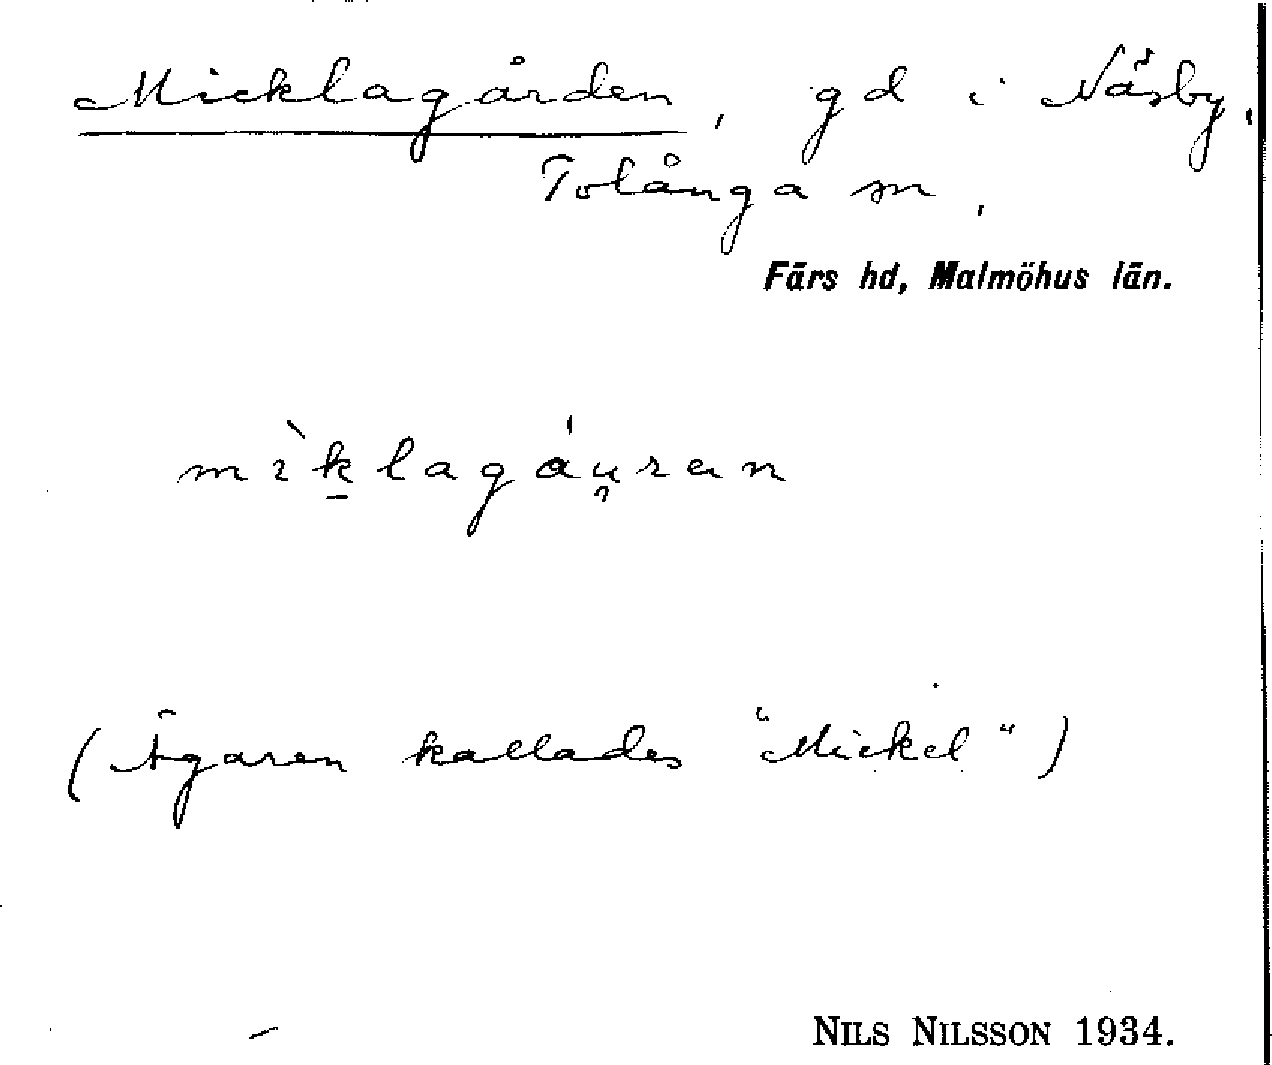 Micklagården, gd i Näsby,
Tolånga sn,
Färs hd, Malmöhus län.
mìk̲lagáu̯ran
(Ägaren kallades "Mickel")
NILS NILSSON 1934.